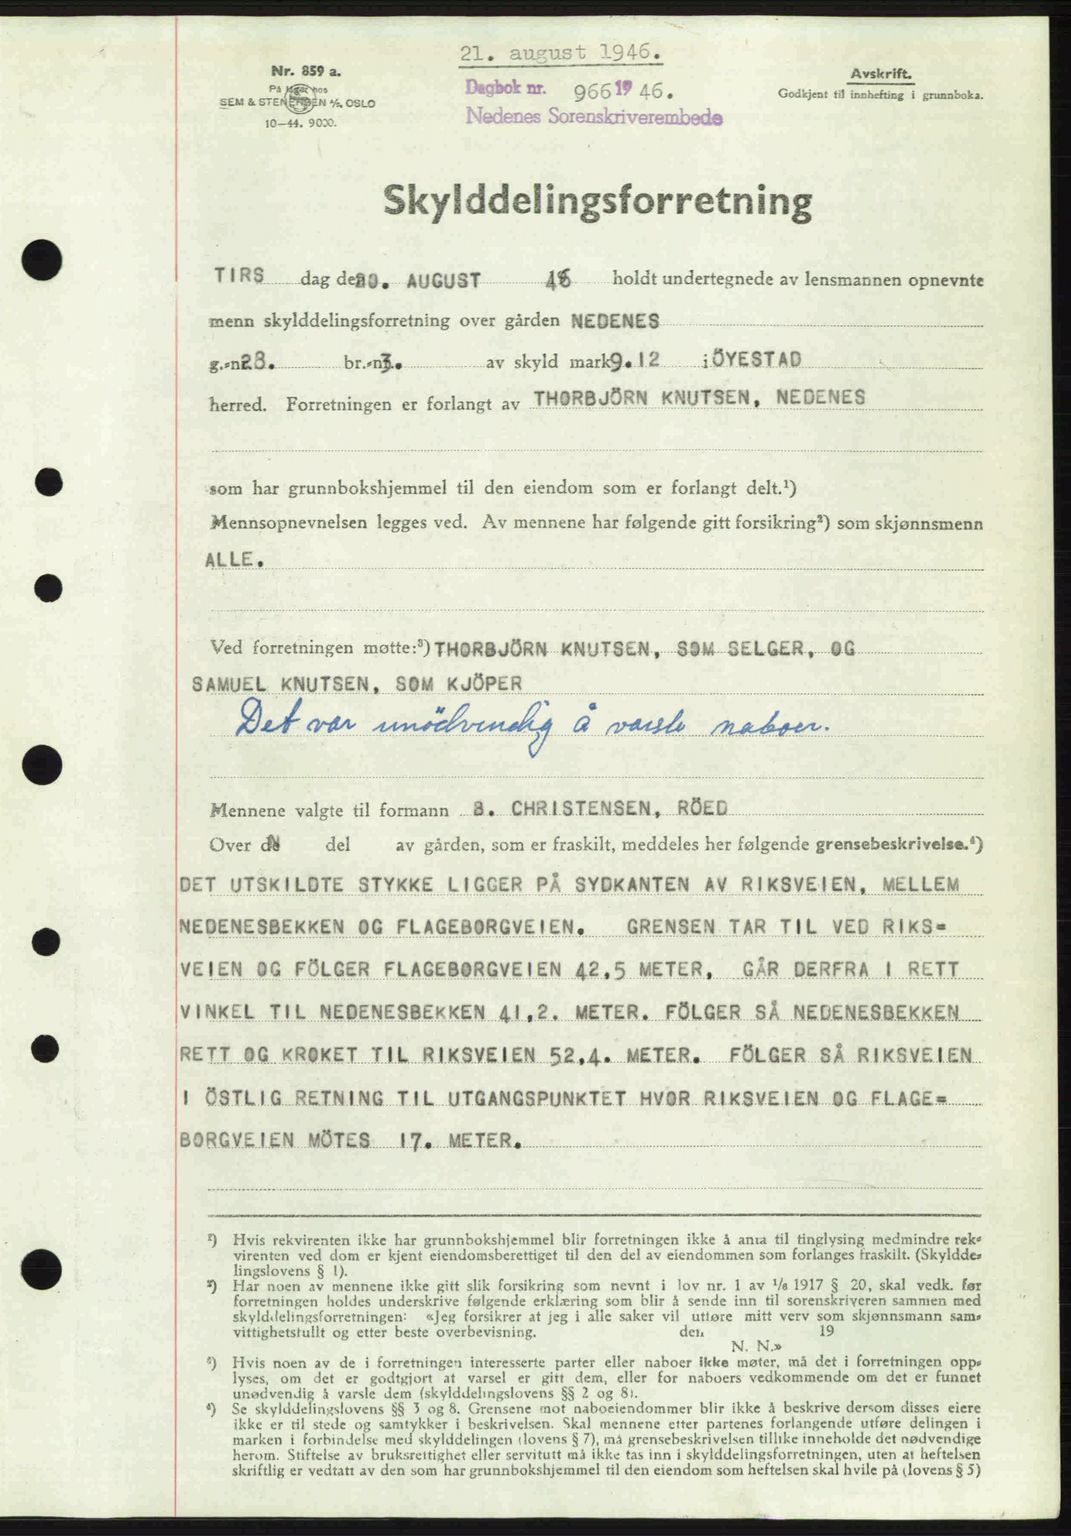 21. august 1946.
Nr. 859 a.
På lager hos
SEM & STENERSEN A/S, OSLO
10-44. 9000.
Dagbok nr. 966 19 46.
Nedenes Sorenskriverembede
Avskrift.
Godkjent til innhefting i grunnboka.
Skylddelingsforretning
TIRS dag den 20. AUGUST 46 holdt undertegnede av lensmannen opnevnte
menn skylddelingsforretning over gården NEDENES
g.-nr. 23. br.-nr. 3. av skyld mark 9.12 i ÖYESTAD
herred. Forretningen er forlangt av THORBJÖRN KNUTSEN, NEDENES
som har grunnbokshjemmel til den eiendom som er forlangt delt.¹)
Mennsopnevnelsen legges ved. Av mennene har følgende gitt forsikring²) som skjønnsmenn
ALLE.
Ved forretningen møtte:³) THORBJÖRN KNUTSEN, SOM SELGER, OG
SAMUEL KNUTSEN, SOM KJÖPER
Det var unödvendig å varsle naboer.
Mennene valgte til formann B. CHRISTENSEN, RÖED
Over den del av gården, som er fraskilt, meddeles her følgende grensebeskrivelse.⁴)
DET UTSKILDTE STYKKE LIGGER PÅ SYDKANTEN AV RIKSVEIEN, MELLEM
NEDENESBEKKEN OG FLAGEBORGVEIEN. GRENSEN TAR TIL VED RIKS=
VEIEN OG FÖLGER FLAGEBORGVEIEN 42,5 METER, GÅR DERFRA I RETT
VINKEL TIL NEDENESBEKKEN 41,2. METER. FÖLGER SÅ NEDENESBEKKEN
RETT OG KROKET TIL RIKSVEIEN 52,4. METER. FÖLGER SÅ RIKSVEIEN
I ÖSTLIG RETNING TIL UTGANGSPUNKTET HVOR RIKSVEIEN OG FLAGE=
BORGVEIEN MÖTES 17. METER.
¹) Hvis rekvirenten ikke har grunnbokshjemmel blir forretningen ikke å anta til tinglysing medmindre rek-
virenten ved dom er kjent eiendomsberettiget til den del av eiendommen som forlanges fraskilt. (Skyldde-
lingslovens § 1).
²) Har noen av mennene ikke gitt slik forsikring som nevnt i lov nr. 1 av 1/6 1917 § 20, skal vedk. før
forretningen holdes underskrive følgende erklæring som blir å sende inn til sorenskriveren sammen med
skylddelingsforretningen: «Jeg forsikrer at jeg i alle saker vil utføre mitt verv som skjønnsmann sam-
vittighetsfullt og etter beste overbevisning. den 19
N. N.»
³) Hvis noen av de i forretningen interesserte parter eller naboer ikke møter, må det i forretningen opp-
lyses, om det er godtgjort at varsel er gitt dem, eller for naboers vedkommende om det er funnet
unødvendig å varsle dem (skylddelingslovens §§ 2 og 8).
⁴) Se skylddelingslovens §§ 3 og 8. Grensene mot naboeiendommer blir ikke å beskrive dersom disses eiere
ikke er til stede og samtykker i beskrivelsen. Skal mennene etter partenes forlangende utføre delingen i
marken i forbindelse med skylddelingen (lovens § 7), må grensebeskrivelsen tillike inneholde det nødvendige
herom. Stiftelse av bruksrettighet eller servitutt må ikke tas inn i skylddelingsforretningen, uten at heftelsen
skriftlig er vedtatt av den som har grunnbokshjemmel til den eiendom som heftelsen skal hvile på (lovens § 5)